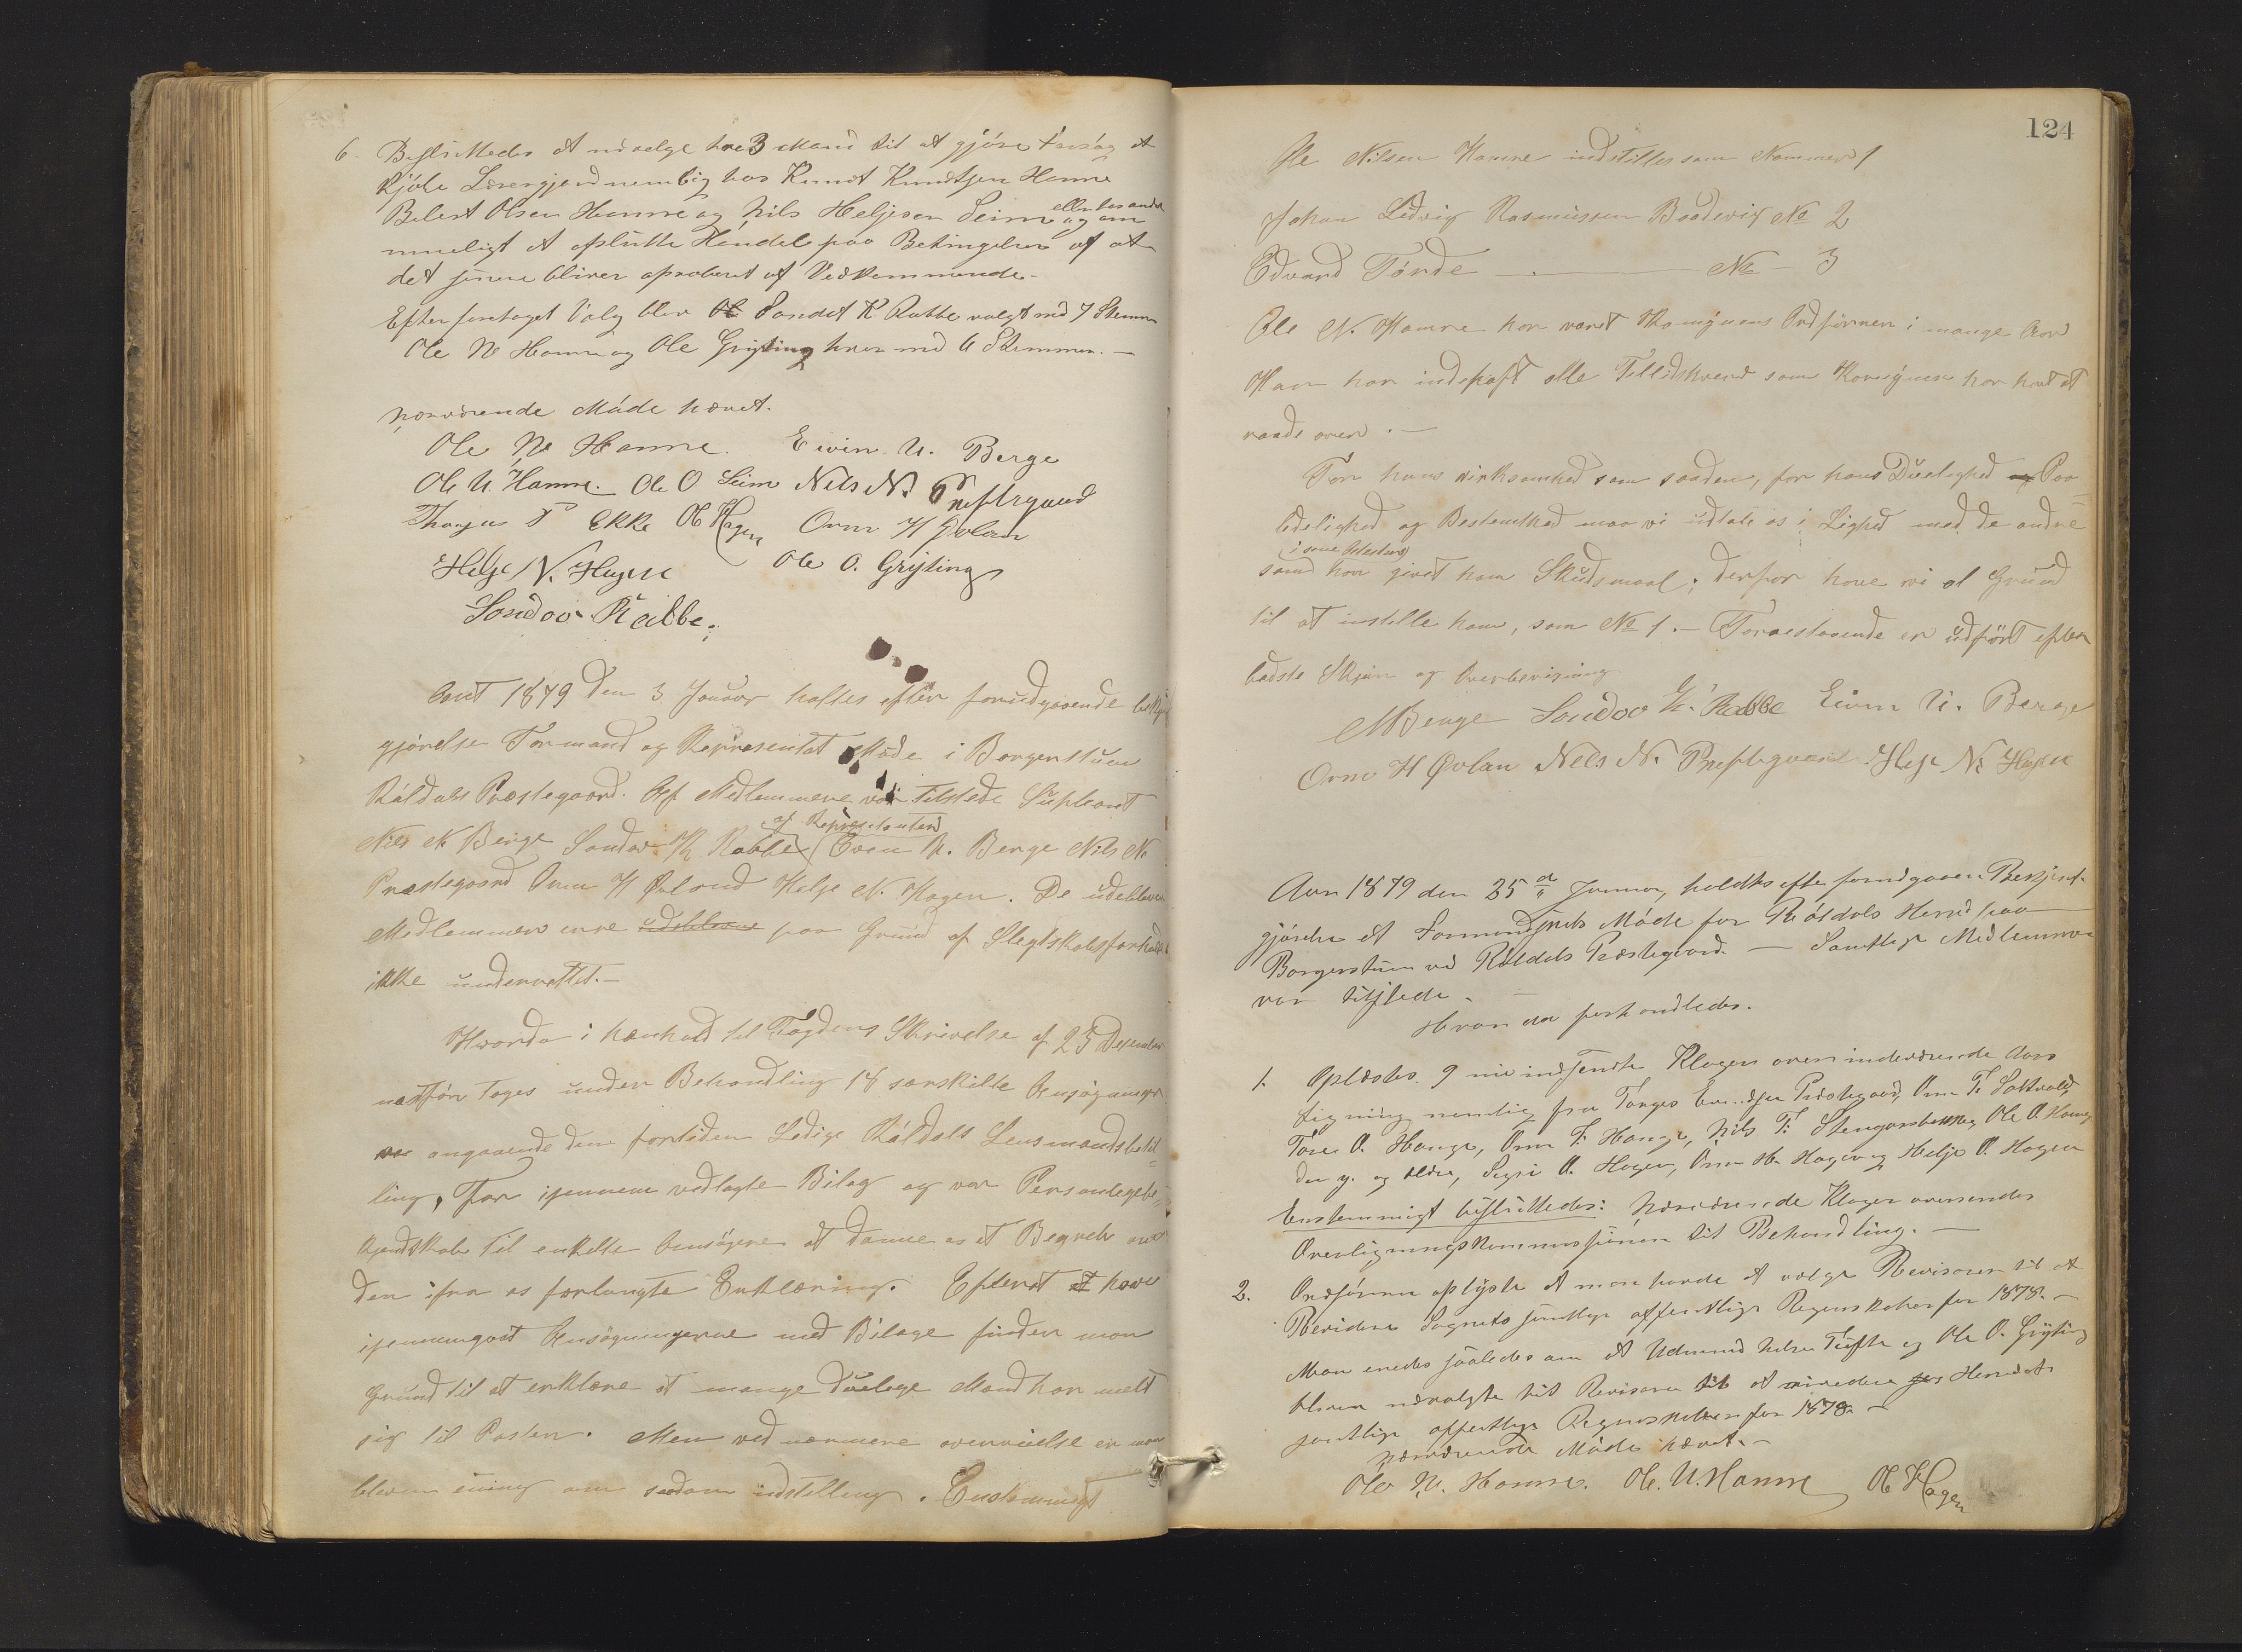 6. Besluttedes at udvælge tre 3 Mand til at gjøre Forsøg at
Kjøbe Lærergjerd nemlig hos Knudt Knudtsen Hamre
Olsen Hamre og Nils Heljesen Seim og om
eller hos andre
mueligt at afslutte Handel paa Betingelser af at
det senere bliver aproberet af Vedkommende –
Efter foretaget Valg blev Sandof K Rabbe valgt med 7 Stemmer
Ole N Hamre og Ole Gryting hver med 6 Stemmer. –
Nærværende Møde hævet.
Ole N. Hamre. Eivin U. Berge
Ole U. Hamre. Ole O Seim Nils N. Prestgaard
P Ekke Ol Hagen Orm H Øvland
Helje N. Hagen Ole O. Gryting
Sondov Rabbe.
Aaret 1879 den 3 Januar holtes efter forudgaaende bekjen
gjørelse Formand og Representat Møde i Borgerstuen
Røldals Præstegaard. Af Medlemmene var tilstede Supleant
af Representanter
Nils N Berge Sondov K Rabbe Even U. Berge Nils N
Præstegaard Orm H Øvland Helje N. Hagen. De udeblevne
Medlemmer ere udeblevne paa Grund af Slegtskabsforhold
ikke underrettet. –
Hvorda i henhold til Fogdens Skrivelse af 23 Desember
næstfør toges under Behandling 18 særskilte Ansøgninger
angaaende den fortiden Ledige Røldals Lensmandsbestil=
ling, For igjennem vedlagte Bilag og vor Personlegebe=
kjendtskab til enkelte Ansøgere at danne os et Begreb over
den ifra os forlangte Erklæring. Efterat at have
igjennemgaat Ansøgningerne med Bilage finder man
Grund til at erklære at mange duelege Mænd har meldt
sig til Posten. Men ved nærmere overveielse er man
bleven ening om sadan indstelling. Enstemmigt
124
Ole Nilsen Hamre indstilles som Nommer 1
Johan Ludvig Rasmussen Baadevig No 2
Edvard Førde – No – 3
Ole N. Hamre har været Komunens Ordfører i mange Aar
Han har indehaft alle Tillidshverv som Komunen har havt at
raade over. –
For hans virksomhed som saadan, for hans Duelighed og Paa=
lidelighed og Bestemthed maa vi udtale os i Lighed med de andre
i sine Atester
som har givet ham Skudsmaal; derfor have vi al Grund
til at instelle ham, som No 1. – Foranstaaende er udført efter
bedste Skjøn og Overbevisning
NNBerge Sondov K. Rabbe Eivin U. Berge
Orm H Øvlan Nils N. Prestgaard Helje N. Hagen
Aar 1879 den 25de Januar, holdtes efter forudgaaen Beskjent
gjørelse et Formandskabs Møde for Røldals Herred paa
Borgerstuen ved Røldals Præstegaard. – Samtlige Medlemmer
var tilstede. –
Hvor da forhandledes.
1. Oplæstes 9 nie indsendte Klager over indeværende Aars
Ligning nemlig fra Torges Præstegaard, Orm T.
Tore O. Hauge, Orm T. Hauge, Nils T. Ole O. Hamre
den y. og ældre, O. Hagen, Orm H. Hagen og Helje O. Hagen
Enstemmigt besluttedes: Nærværende Klager oversendes
Overligningskommissionen til Behandling. –
2. Ordføreren oplyste at man havde at vælge Revisorer til at
Revidere Sognets samtlige offentlige Regnskaber for 1878. –
Man enedes saaledes om at Udmund Tufte og Ole O. Gryting
bleven udvalgte til Revisorer til at revidere Herredets
samtlige offentlige Regnskaber for 1878. –
Nærværende Møde hævet. –
Ole N. Hamre. Ole U. Hamre Ol Hagen